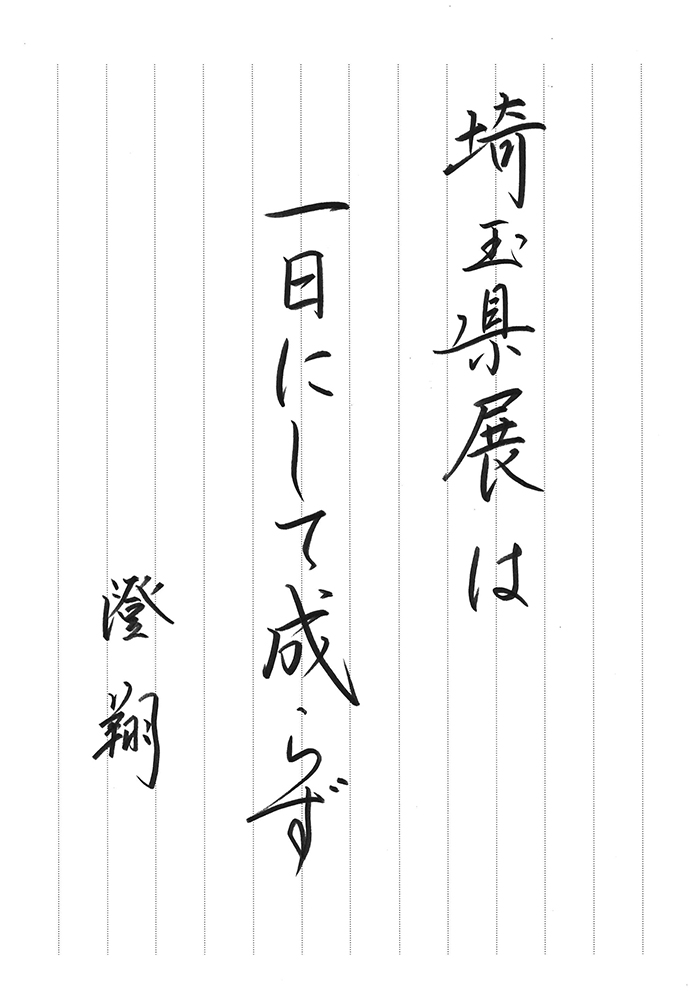 埼玉県展は
一日にして成らず
澄翔